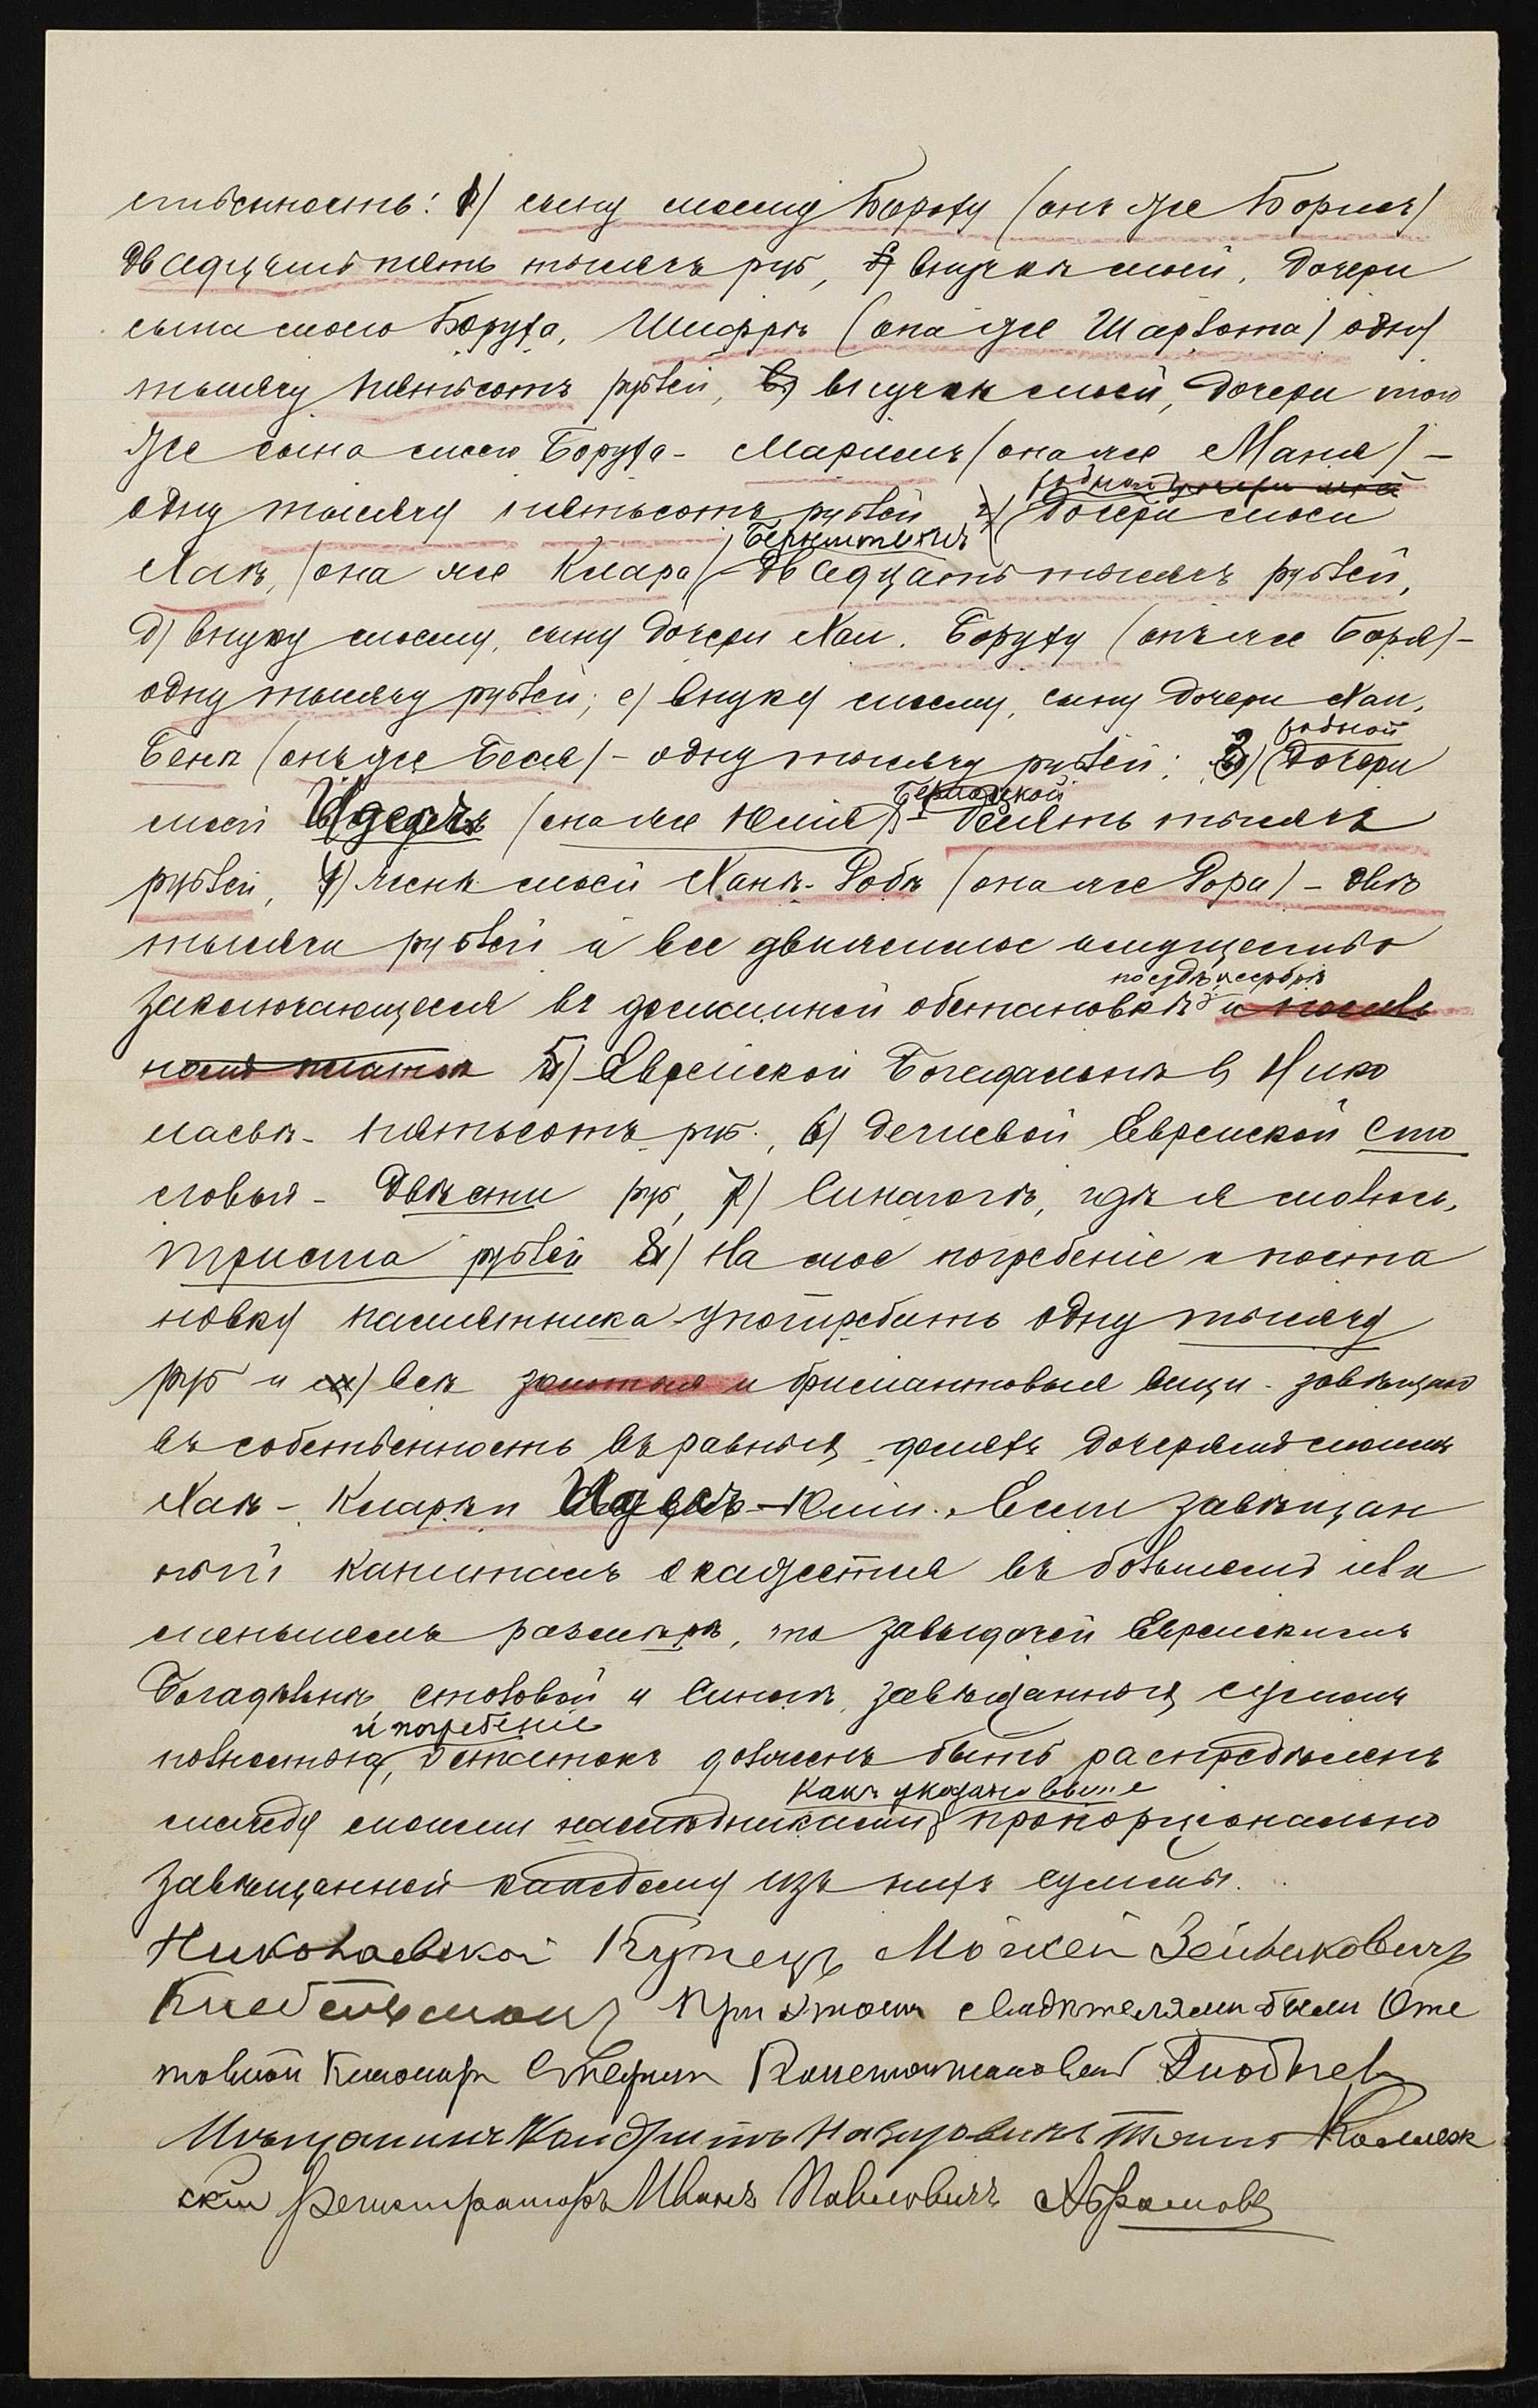 ственность: 1) сыну моему Боруху (онъ же Борисъ)
двадцать пять тысячъ руб, внучкѣ моей, дочери
сына моего Боруха, Шифрѣ (она же Шарлота) одну
тысячу пятьсотъ рублей, в) внучкѣ моей, дочери того
же сына моего Боруха - Марьямъ (она же Маня) -
одну тысячу пятьсотъ рублей 2) (дочери моей
Бернштейнъ
Хаѣ, (она же Клара) - двадцать тысячъ рублей,
д) внуку моему, сыну дочери Хаи, Боруху (онъ же Боря) -
одну тысячу рублей; е) внуку моему, сыну дочери Хаи,
родной
Бенѣ (онъ же Беся) - одну тысячу рублей; 3) (дочери
моей (она же Юлія) - десять тысячъ
рублей, 4) женѣ моей Ханѣ-Добѣ (она же Дора) - двѣ
тысячи рублей и все движимое имущество
заключающееся въ домашней обстановкѣ
5) Еврейской Богадельнѣ въ Нико
лаевѣ - пятьсотъ руб., 6) дешевой Еврейской сто
ловой - двѣсти руб, 7) Синагогѣ, гдѣ я молюсь,
триста рублей 8) На мое погребеніе и поста
новку памятника употребить одну тысячу
руб и всѣ золотыя и брилиантовыя вещи - завѣщаю
въ собственность въ равныхъ доляхъ дочерямъ моимъ
Хаѣ - Кларѣ и - Юліи. Если завѣщан
ный капиталъ окажется въ большемъ или
меньшемъ размѣрѣ, то за выдачей Еврейскимъ
Богадѣльнѣ, столовой и Синаг. завѣщанныхъ суммъ
и погребеніе
полностью, остатокъ долженъ быть распредѣленъ
какъ указано выше
между моими наслѣдниками пропорціонально
завѣщанной каждому изъ нихъ суммы.
Николаевской Купецъ Мойсей Зейликовичъ
при этомъ свидѣтелями были Оте
Мѣщанинъ Коллеж
скій Регистраторъ Иванъ Павловичъ Абрамовъ